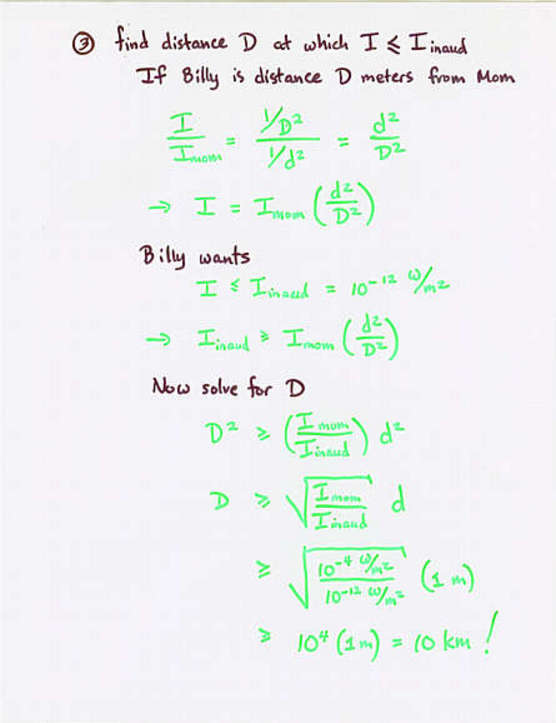 ③ find distance D at which I ≤ I inaud
If Billy is distance D meters from Mom
I/I mom = (1/D²)/(1/d²) = d²/D²
→ I = I mom (d²/D²)
Billy wants
I ≤ I inaud = 10⁻¹² W/m²
→ I inaud ≥ I mom (d²/D²)
Now solve for D
D² ≥ (I mom/I inaud) d²
D ≥ √(I mom/I inaud) d
≥ √(10⁻⁴ W/m²/10⁻¹² W/m²) (1 m)
≥ 10⁴ (1 m) = 10 km !